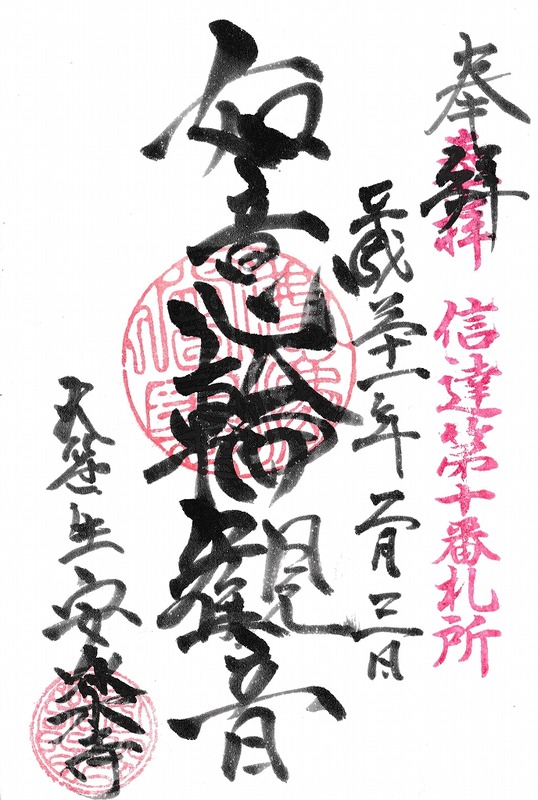 奉拝
奉拝 信達第十番札所
平成三十一年 二月 三日
如意輪観音
大笹生 安楽寺